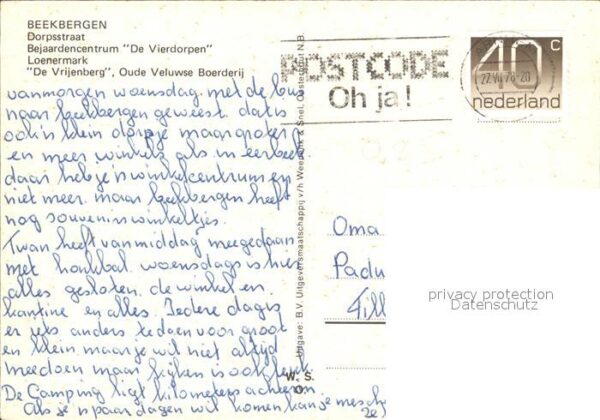 BEEKBERGEN
Dorpsstraat
Bejaardencentrum "De Vierdorpen"
Loenermark
"De Vrijenberg", Oude Veluwse Boerderij
POSTCODE
Oh ja!
40 c
nederland
27.VII.78-20
vanmorgen woensdag met de bus
naar beekbergen geweest. dat is
ook 'n klein dorpje maar groter
en meer winkels als in eerbeek.
daar heb je 'n winkelcentrum en
niet meer. maar beekbergen heeft
nog souveninwinkeltjes.
Twan heeft vanmiddag meegedaan
met honkbal. woensdags is hier
alles gesloten. de winkel en
kantine en alles. Iedere dag is
er iets anders te doen voor groot
en klein. maar je wil niet altijd
meedoen maar kijken is ook leuk.
De Camping ligt kilometers achtereen.
Als je 'n paar dagen wil komen kan je
Oma
Padu
Till
Uitgave: B.V. Uitgeversmaatschappij v/h Weenenk & Snel, Oosterhout N.B.
W. S.
O.
privacy protection
Datenschutz